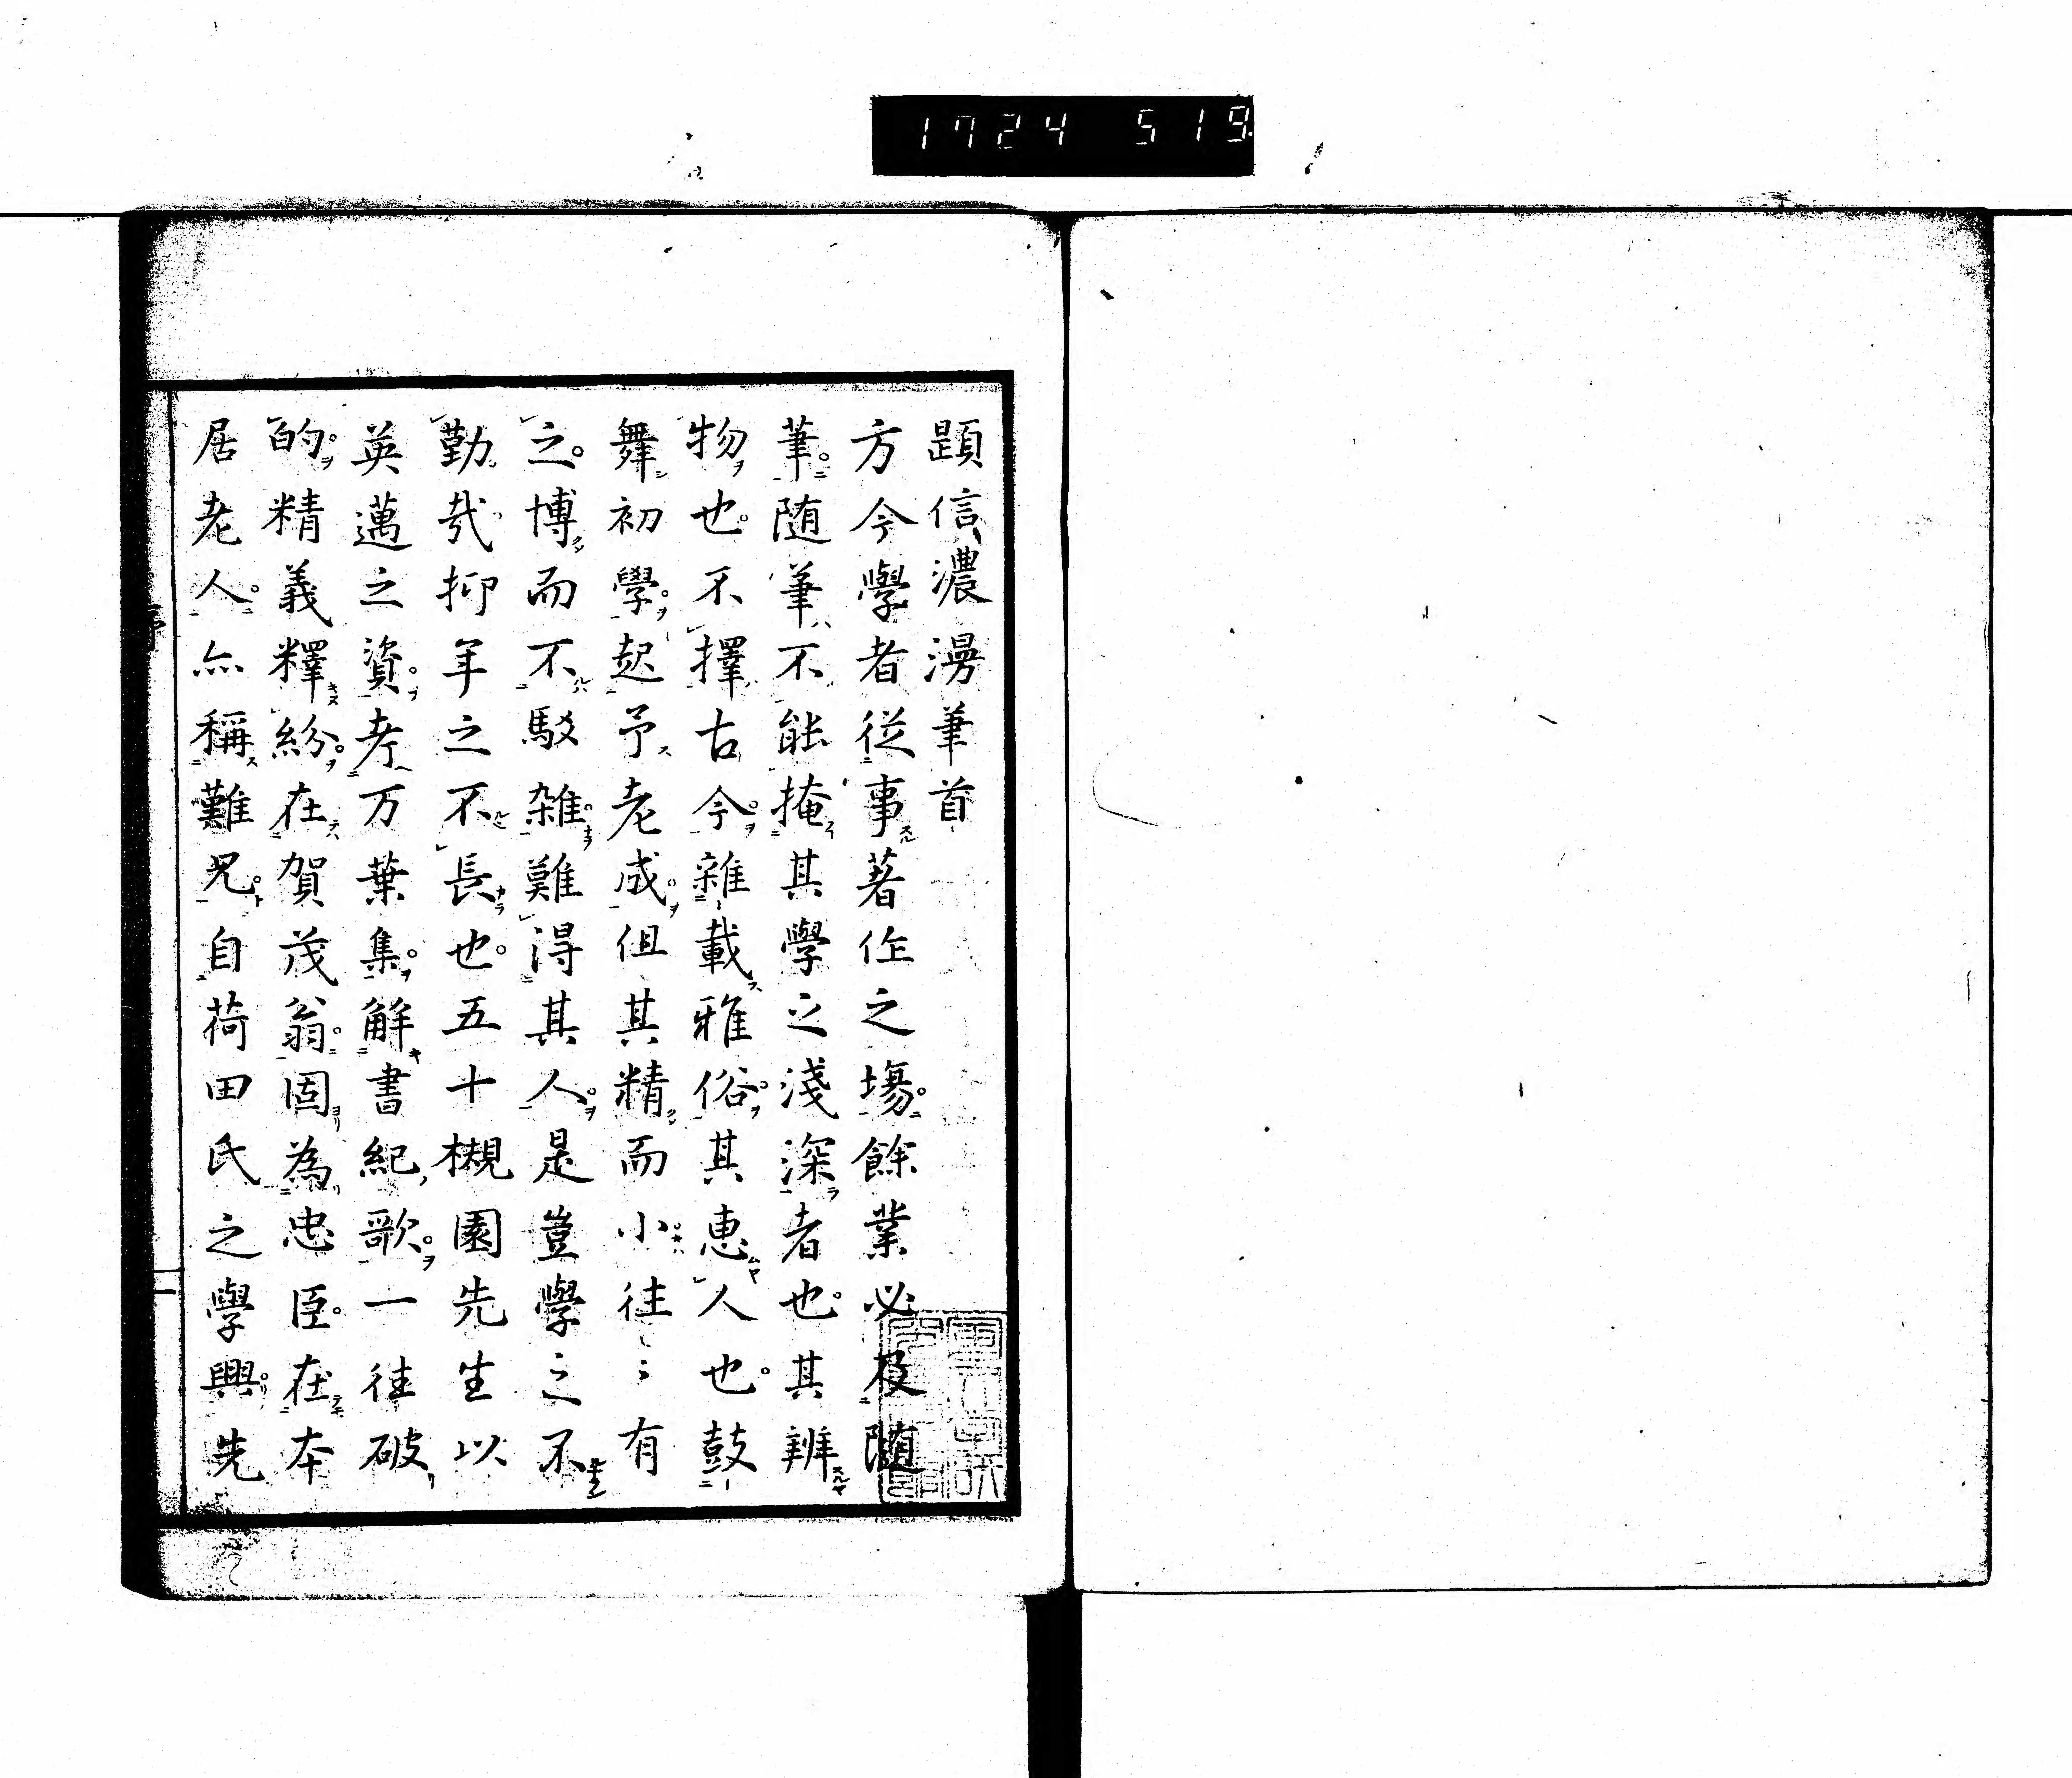 1724 519
題信濃漫筆首
方今學者従事著作之塲餘業必及随
筆随筆不能掩其學之淺深者也其辨
物也不擇古今雜載雅俗其恵人也鼓
舞初學起予老成但其精而小往〻有
之博而不駁雑難得其人是豈學之不
勤哉抑年之不長也五十槻園先生以
英邁之資考万葉集解書紀歌一往破
的精義釋紛在賀茂翁固為忠臣在本
居老人亦稱難兄自荷田氏之學興先